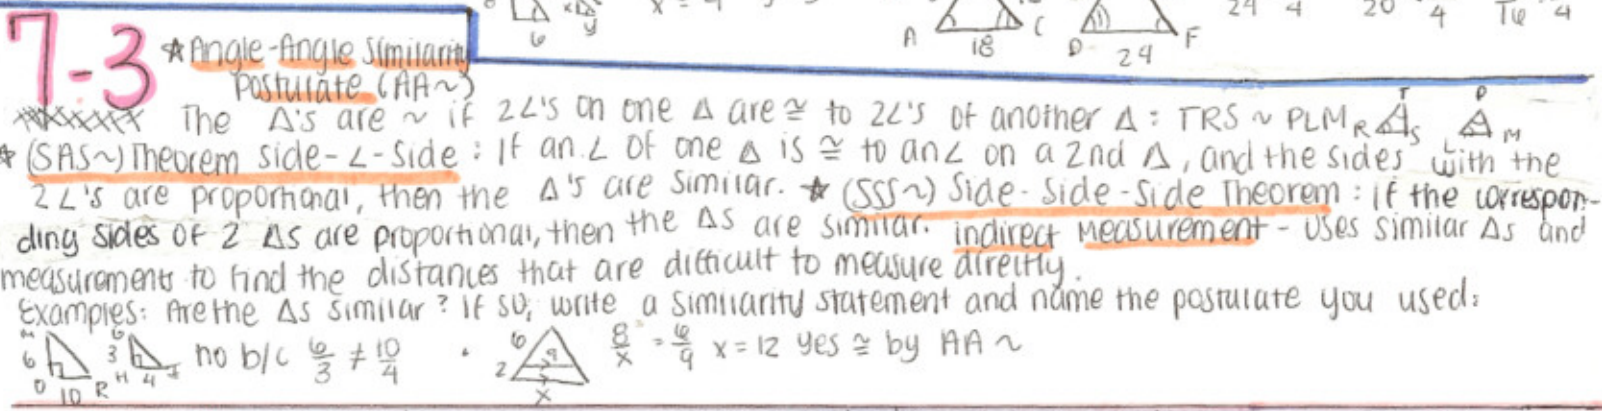 6 x y x = 4
A 18 C D 24 F
24 4 20 4 16 4
7-3 ☆ Angle-Angle Similarity
Postulate (AA~)
The Δ's are ~ if 2∠'s on one Δ are ≅ to 2∠'s of another Δ : TRS ~ PLM R T S L P M
☆ (SAS~) Theorem side-∠-side : If an ∠ of one Δ is ≅ to an ∠ on a 2nd Δ, and the sides with the
2∠'s are proportional, then the Δ's are similar. ☆ (SSS~) Side-Side-Side Theorem : if the correspon-
ding sides of 2 Δs are proportional, then the Δs are similar. indirect Measurement - Uses similar Δs and
measurements to find the distances that are difficult to measure directly.
Examples: Are the Δs similar? If so, write a similarity statement and name the postulate you used:
6 O 10 R 3 H 4 I no b/c 6/3 ≠ 10/4 · 6 2 9 x 8/x = 6/9 x = 12 yes ≅ by AA ~